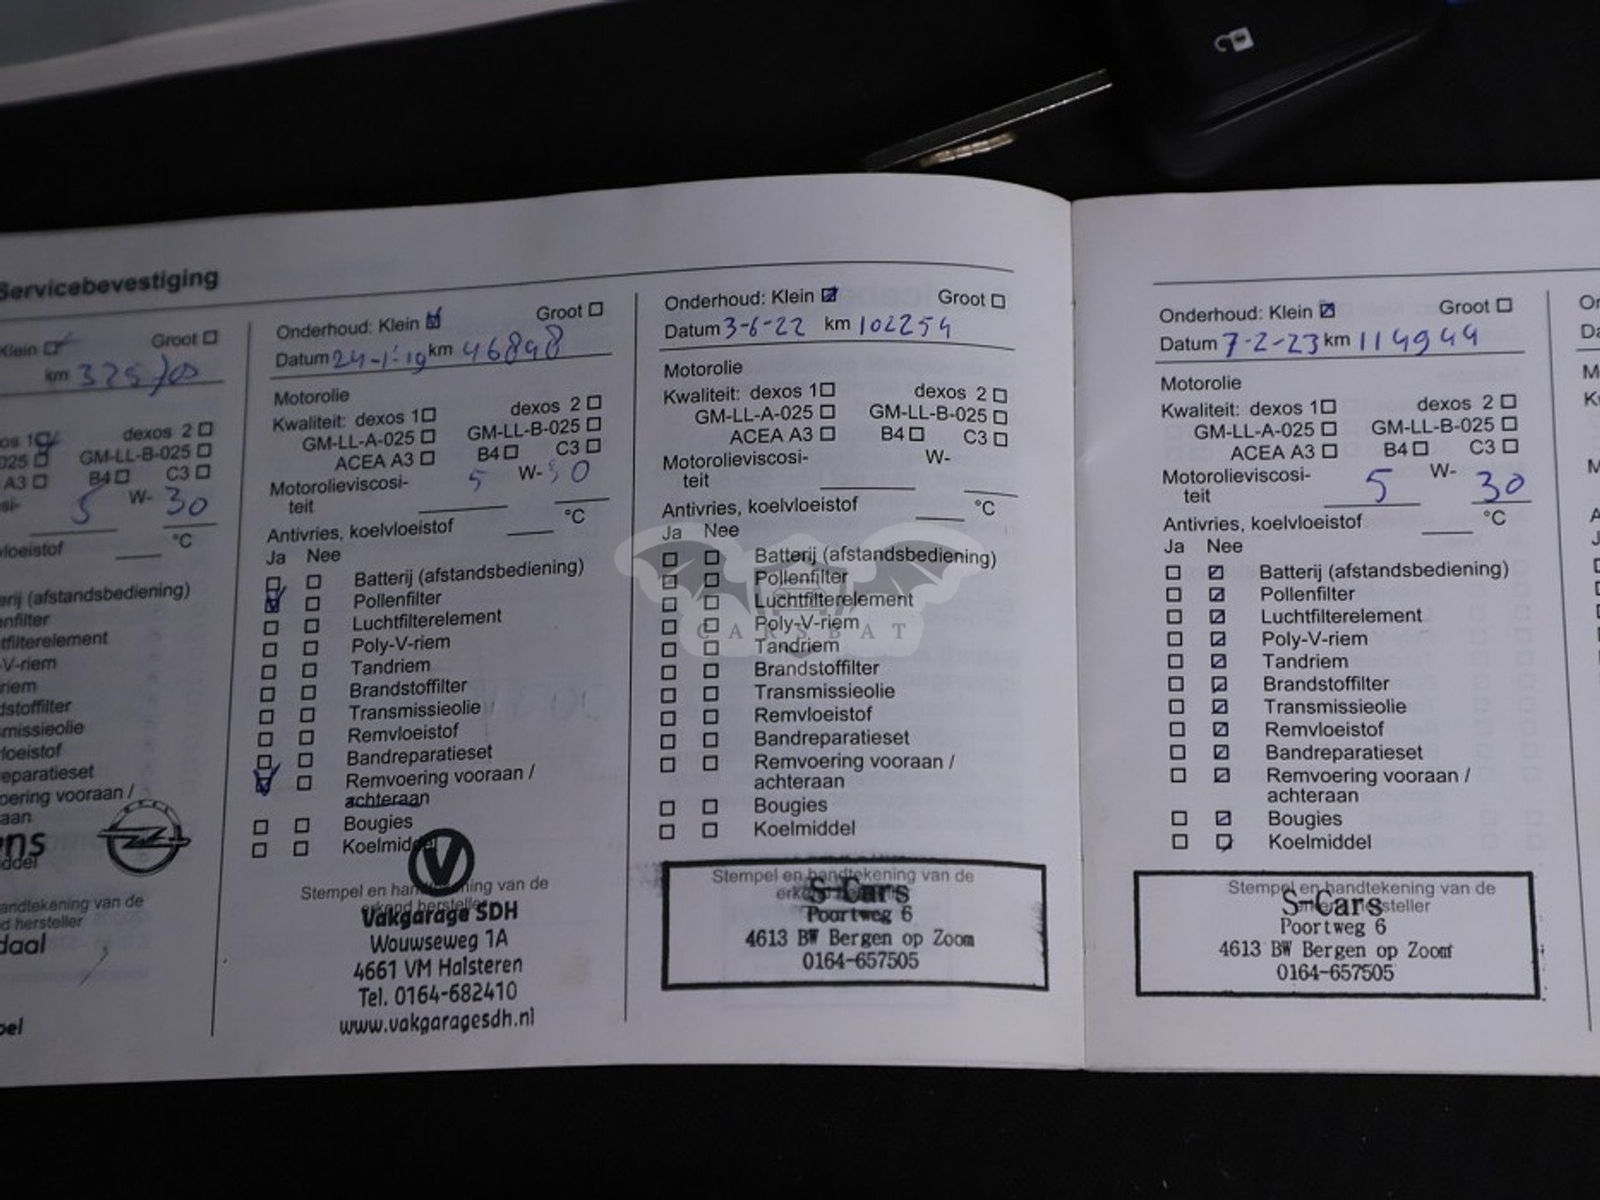 Servicebevestiging
Klein Groot
km
dexos 2
025 GM-LL-B-025
A3 B4 C3
5 W- 30
vloeistof °C
erij (afstandsbediening)
enfilter
tfilterelement
V-riem
riem
dstoffilter
missieolie
loeistof
eparatieset
oering vooraan /
aan
ens
iddel
andtekening van de
d hersteller
daal
pel
Onderhoud: Klein Groot
Datum 24-1-19 km 46898
Motorolie
Kwaliteit: dexos 1 dexos 2
GM-LL-A-025 GM-LL-B-025
ACEA A3 B4 C3
Motorolieviscosi- 5 W-30
teit
Antivries, koelvloeistof °C
Ja Nee
Batterij (afstandsbediening)
Pollenfilter
Luchtfilterelement
Poly-V-riem
Tandriem
Brandstoffilter
Transmissieolie
Remvloeistof
Bandreparatieset
Remvoering vooraan /
achteraan
Bougies
Koelmiddel
Stempel en handtekening van de
erkend hersteller
Vakgarage SDH
Wouwseweg 1A
4661 VM Halsteren
Tel. 0164-682410
www.vakgaragesdh.nl
Onderhoud: Klein Groot
Datum 3-6-22 km 102254
Motorolie
Kwaliteit: dexos 1 dexos 2
GM-LL-A-025 GM-LL-B-025
ACEA A3 B4 C3
Motorolieviscosi- W-
teit
Antivries, koelvloeistof °C
Ja Nee
Batterij (afstandsbediening)
Pollenfilter
Luchtfilterelement
Poly-V-riem
CARSBAT
Tandriem
Brandstoffilter
Transmissieolie
Remvloeistof
Bandreparatieset
Remvoering vooraan /
achteraan
Bougies
Koelmiddel
Stempel en handtekening van de
S-Cars
Poortweg 6
4613 BW Bergen op Zoom
0164-657505
Onderhoud: Klein Groot
Datum 7-2-23 km 114944
Motorolie
Kwaliteit: dexos 1 dexos 2
GM-LL-A-025 GM-LL-B-025
ACEA A3 B4 C3
Motorolieviscosi- 5 W- 30
teit
Antivries, koelvloeistof °C
Ja Nee
Batterij (afstandsbediening)
Pollenfilter
Luchtfilterelement
Poly-V-riem
Tandriem
Brandstoffilter
Transmissieolie
Remvloeistof
Bandreparatieset
Remvoering vooraan /
achteraan
Bougies
Koelmiddel
Stempel en handtekening van de
hersteller
S-cars
Poortweg 6
4613 BW Bergen op Zoom
0164-657505